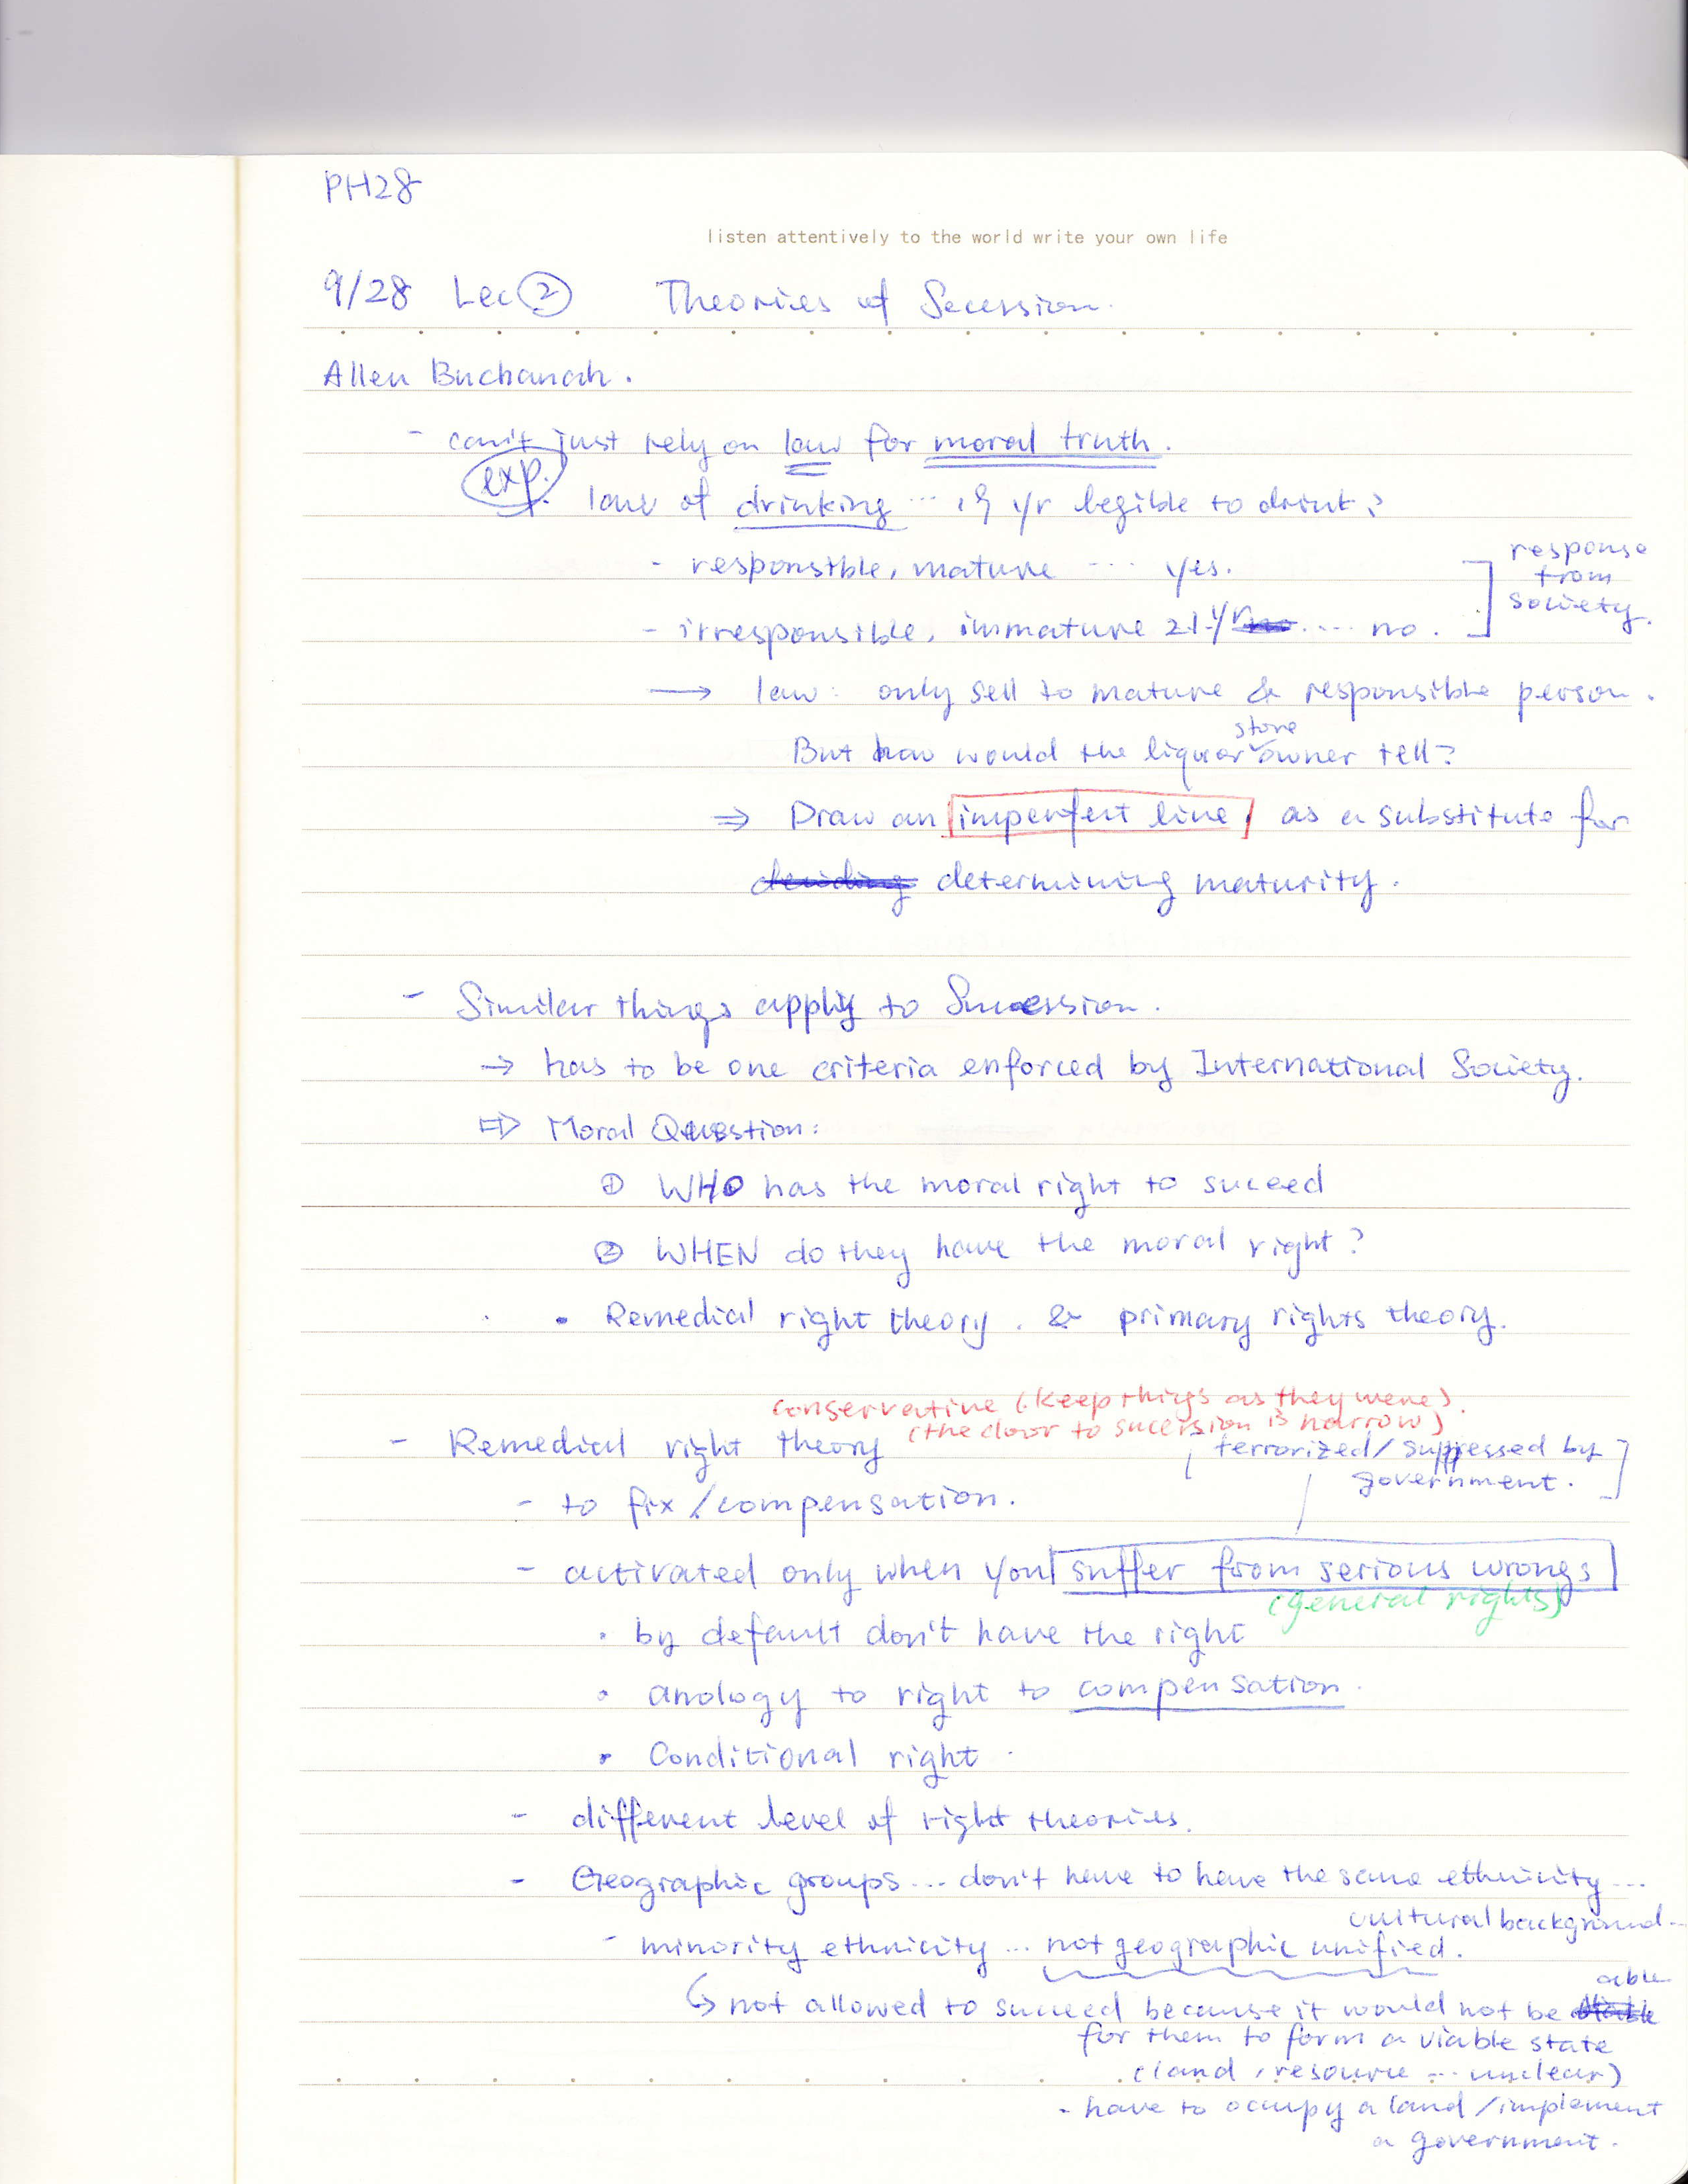 PH28
listen attentively to the world write your own life
9/28 Lec ② Theories of Secession.
Allen Buchanan.
- can't just rely on law for moral truth.
exp. law of drinking ... 19 yr legible to drink?
- responsible, mature ... yes.
- irresponsible, immature 21 yr .... no.
response
from
society.
→ law: only sell to mature & responsible person.
But how would the liquor store owner tell?
⇒ Draw an imperfect line, as a substitute for
deciding determining maturity.
- Similar things apply to Sucession.
→ has to be one criteria enforced by International Society.
⇒ Moral Question:
① WHO has the moral right to suceed
② WHEN do they have the moral right?
• Remedial right theory. & primary rights theory.
conservative (keep things as they were).
(the door to sucession is narrow)
- Remedial right theory
terrorized/suppressed by
government.
- to fix/compensation.
- activated only when you suffer from serious wrongs
(general rights)
• by default don't have the right
• anology to right to compensation.
• Conditional right.
- different level of right theories.
- Geographic groups... don't have to have the same ethnicity...
cultural background...
- minority ethnicity ... not geographic unified.
↳ not allowed to succeed because it would not be able
for them to form a viable state
(land, resource ... unclear)
- have to occupy a land/implement
a government.